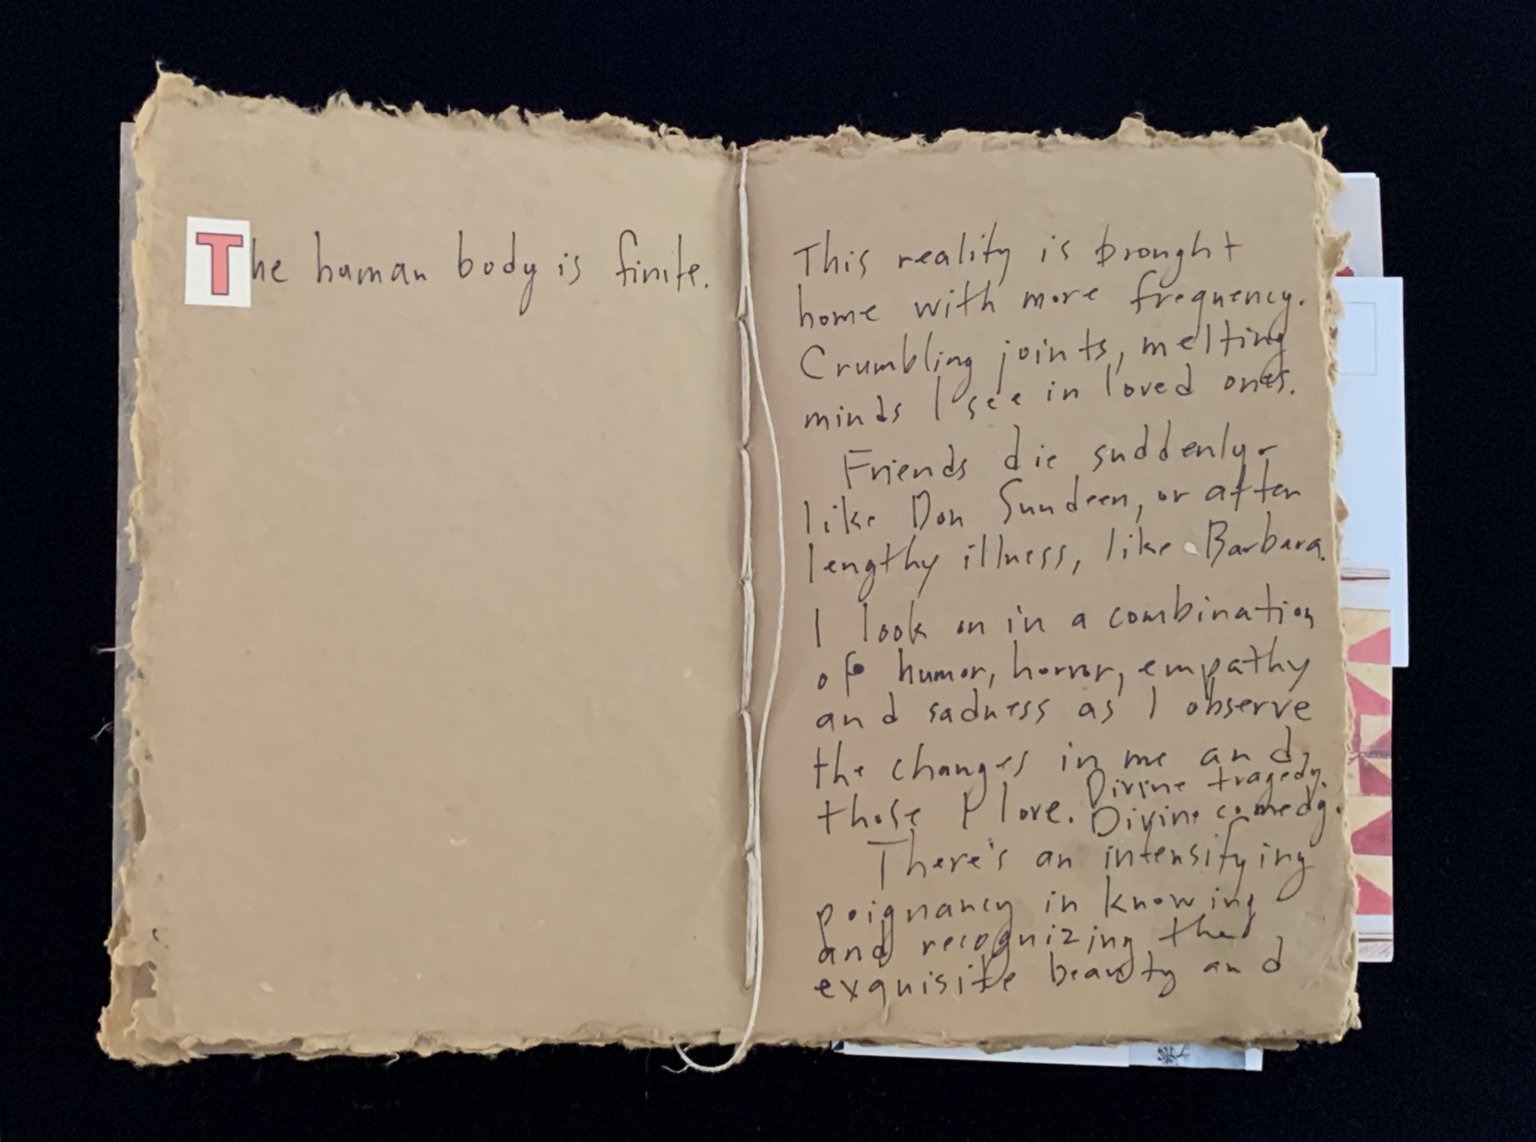 The human body is finite.
This reality is brought
home with more frequency.
Crumbling joints, melting
minds I see in loved ones.
Friends die suddenly -
like Don Sundeen, or after
lengthy illness, like Barbara.
I look on in a combination
of humor, horror, empathy
and sadness as I observe
the changes in me and
those I love. Divine tragedy.
Divine comedy.
There's an intensifying
poignancy in knowing
and recognizing the
exquisite beauty and